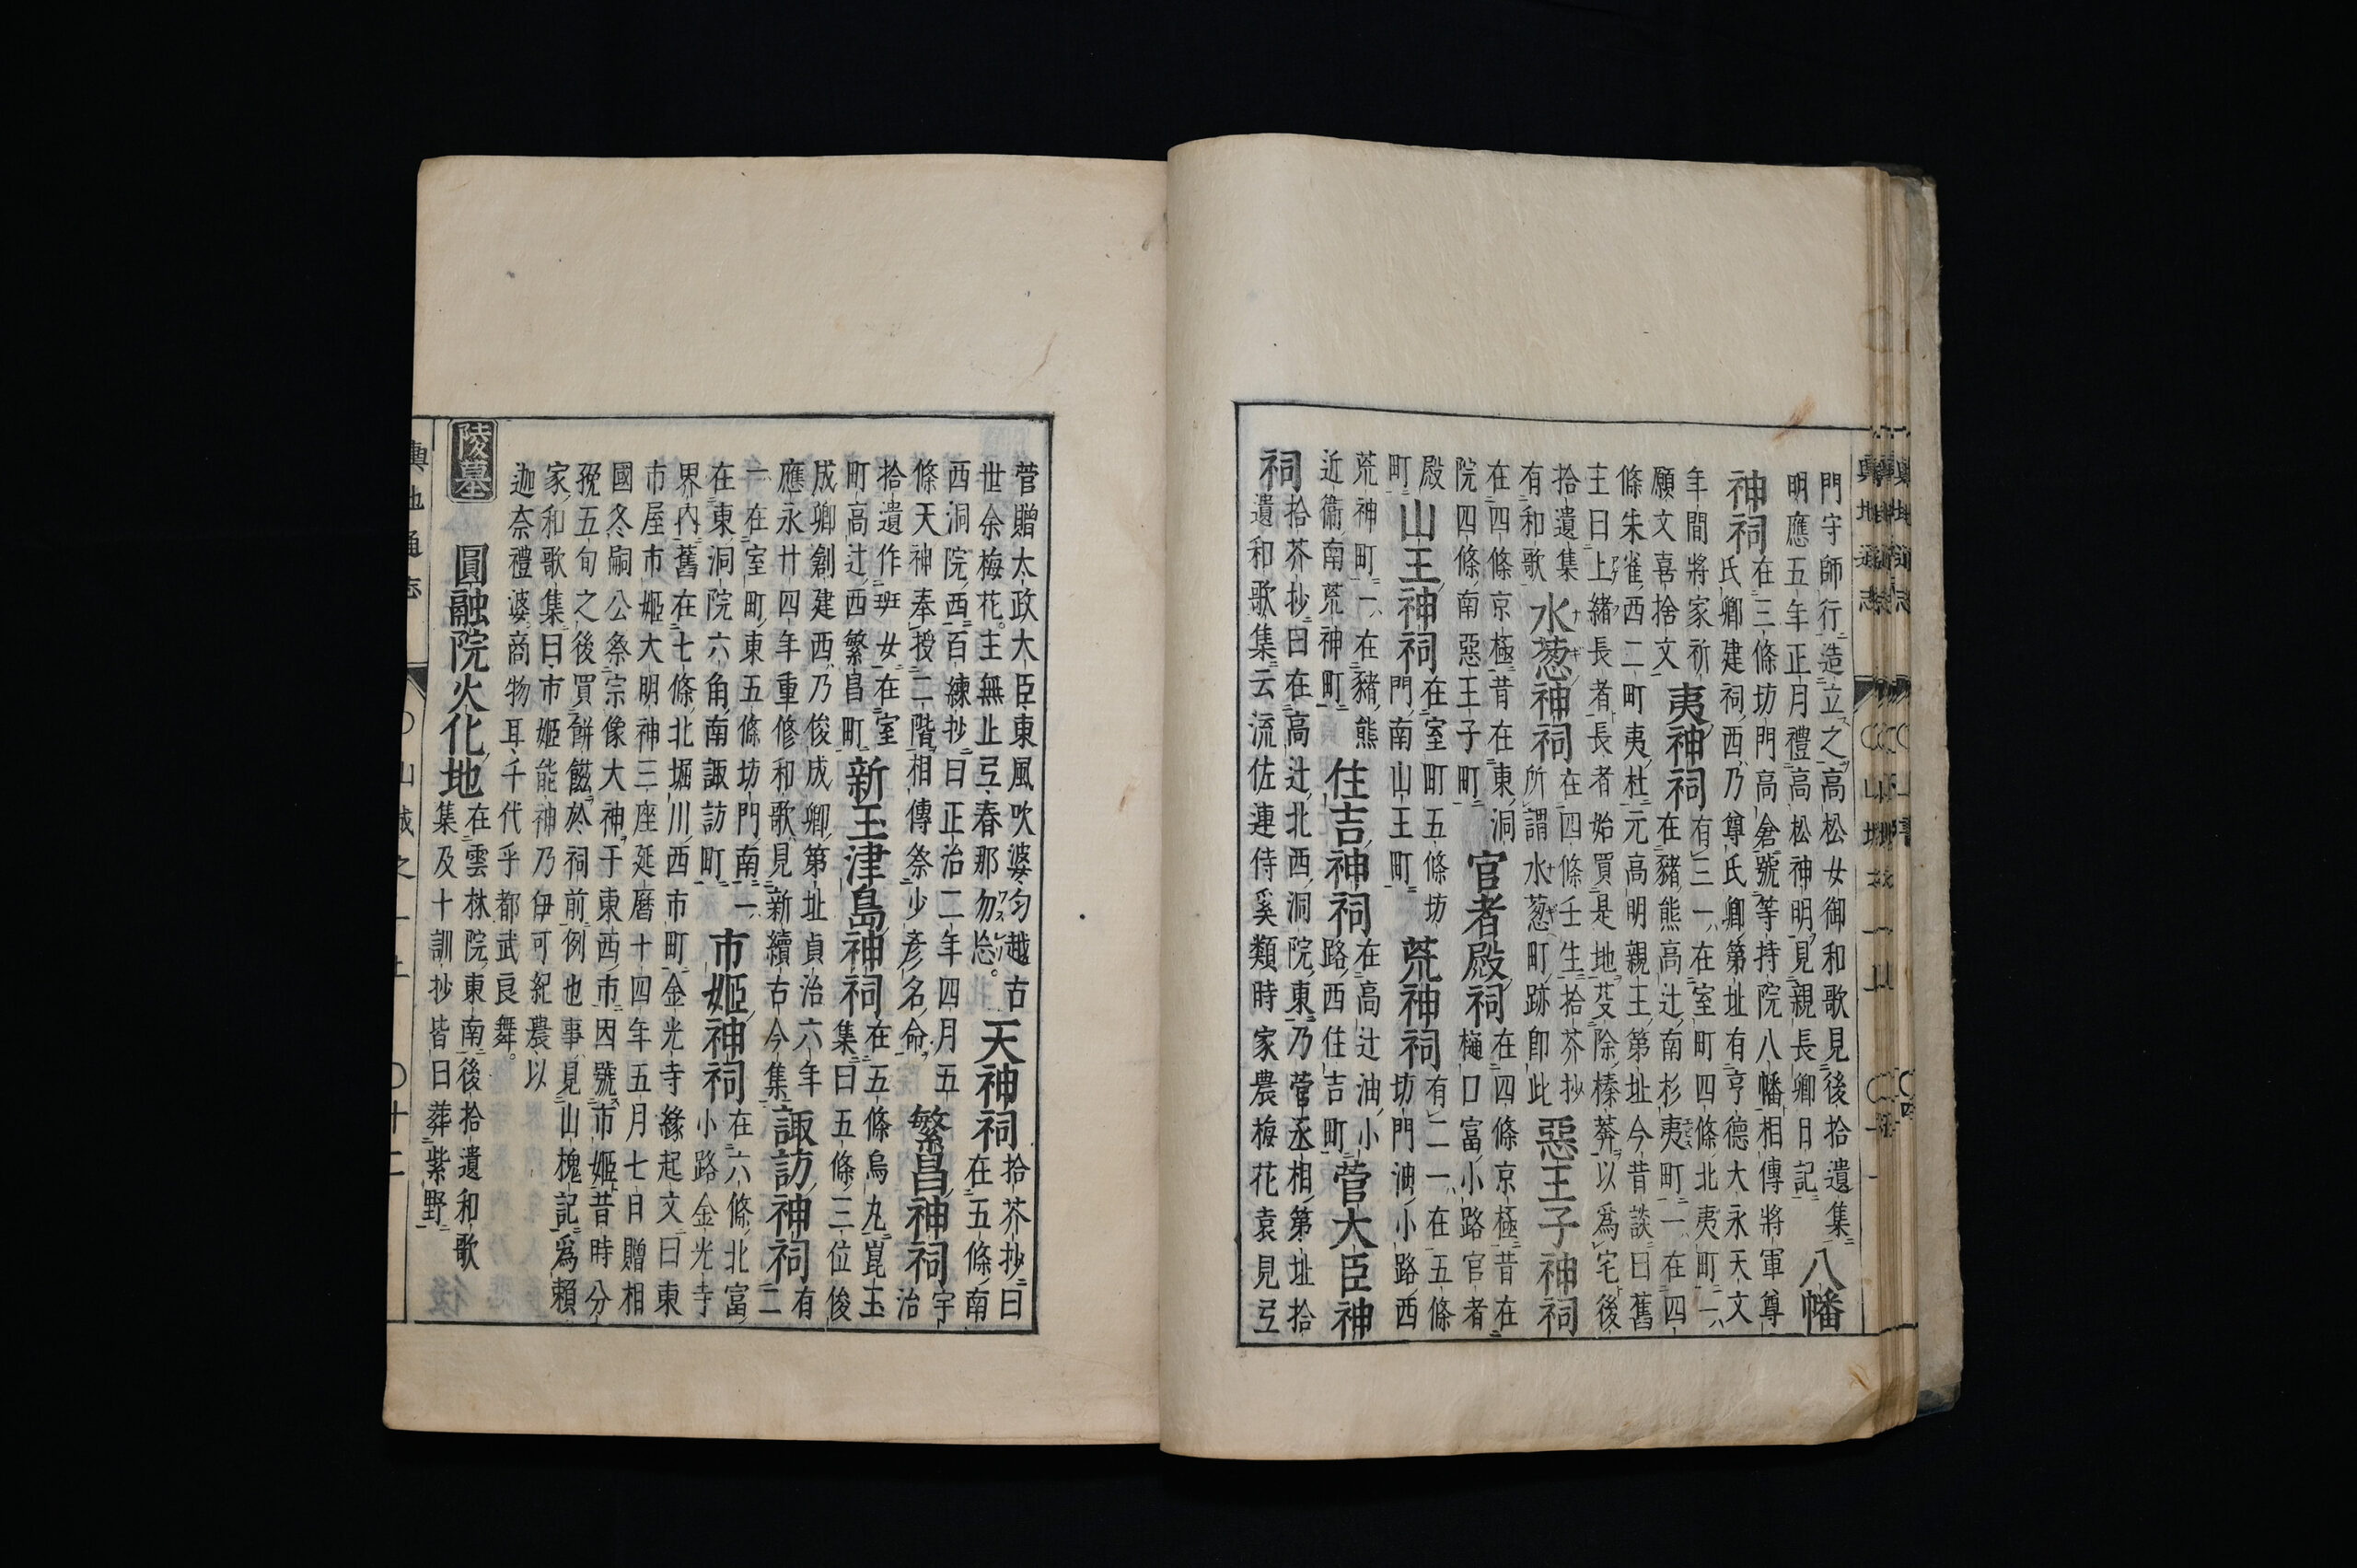 門守師行造立之高松女御和歌見後拾遺集
明應五年正月禮高松神明見親長卿日記
八幡
神祠
在三條坊門高倉號等持院八幡相傳將軍尊
氏卿建祠西乃尊氏卿第址有亨德大永天文
年間將家祈
願文喜捨文
夷神祠
有三一在室町四條北夷町一
在豬熊高辻南杉夷町一在四
條朱雀西二町夷杜元高明親王第址今昔談曰舊
主曰上緒長者長者始買是地芟除榛莽以爲宅後
拾遺集
有和歌
水葱神祠
在四條壬生拾芥抄
所謂水葱町跡卽此
惡王子神祠
在四條京極昔在東洞
院四條南惡王子町
官者殿祠
在四條京極昔在
樋口富小路官者
殿
町
山王神祠
在室町五條坊
門南山王町
荒神祠
有二一在五條
坊門油小路西
荒神町一在豬熊
近衞南荒神町
住吉神祠
在高辻油小
路西住吉町
菅大臣神
祠
拾芥抄曰在高辻北西洞院東乃菅丞相第址拾
遺和歌集云流佐連侍奚類時家農梅花袁見弖
菅贈太政大臣東風吹婆匂越古
世余梅花。主無止弖春那勿忘。
天神祠
拾芥抄曰
在五條南
西洞院西百練抄曰正治二年四月五
條天神奉授二階相傳祭少彦名命
繁昌神祠
宇
治
拾遺作班女在室
町高辻西繁昌町
新玉津島神祠
在五條烏丸崑玉
集曰五條三位俊
成卿創建西乃俊成卿第址貞治六年
應永廿四年重修和歌見新續古今集
諏訪神祠
有
二
一在室町東五條坊門南一
在東洞院六角南諏訪町
市姬神祠
在六條北富
小路金光寺
界內舊在七條北堀川西市町金光寺緣起文曰東
市屋市姬大明神三座延曆十四年五月七日贈相
國冬嗣公祭宗像大神于東西市因號市姬昔時分
娩五旬之後買餅於祠前例也事見山槐記爲賴
家和歌集曰市姬能神乃伊可紀農以
迦奈禮婆商物耳千代乎都武良舞。
陵墓
圓融院火化地
在雲林院東南後拾遺和歌
集及十訓抄皆曰葬紫野
輿地通志 〇山城之一上 〇十二